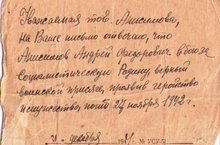 Уважаемая тов. Анисимова,
на Ваше письмо отвечаю, что
Анисимов Андрей Федорович в бою за
социалистическую Родину, верный
воинской присяге, проявив геройство
и мужество, погиб 24 ноября 1942 г.
декабря 194